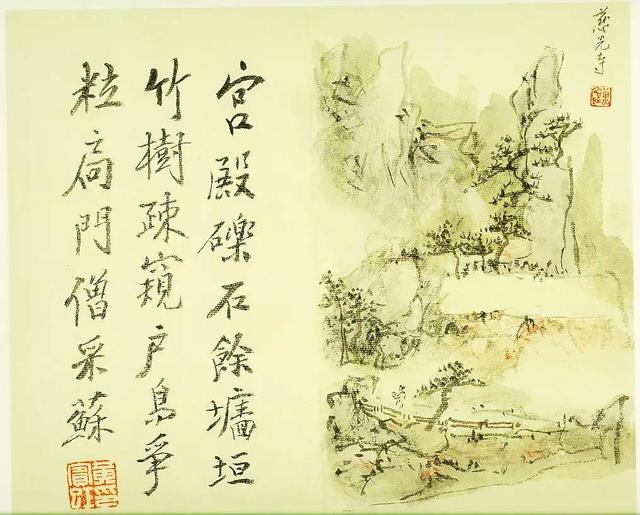 慈光寺
宮殿礫石餘墉垣
竹樹疎窺戶鳥爭
粒高門僧采蘇